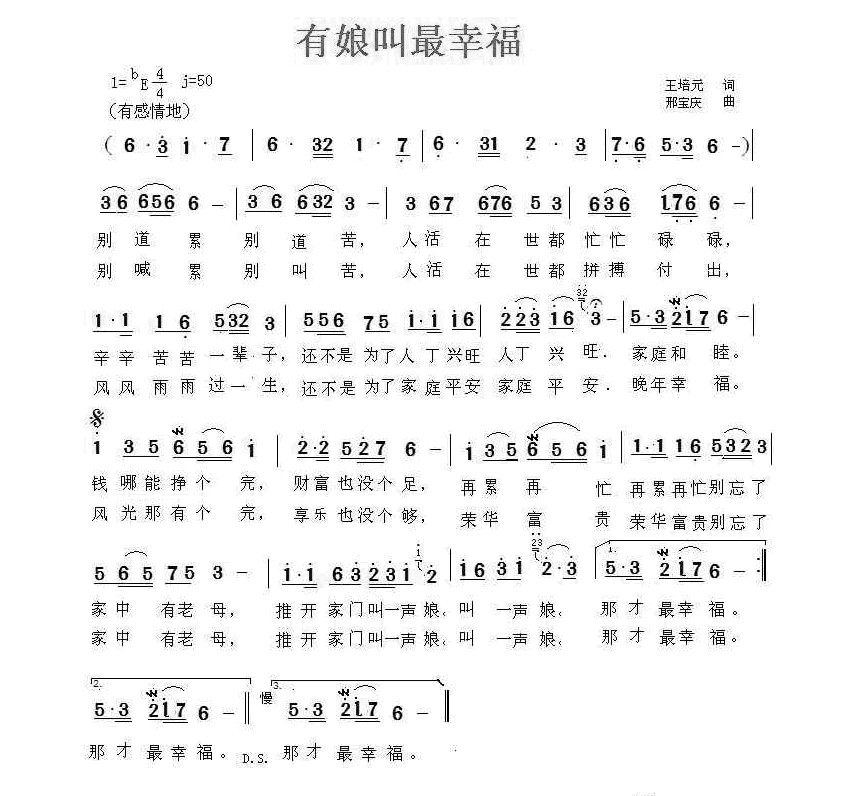 有娘叫最幸福
1=ᵇE 4/4 j=50
王培元 词
(有感情地)
邢宝庆 曲
( 6 · 3 1 · 7 | 6 · 32 1 · 7 | 6 · 31 2 · 3 | 7 · 6 5 · 3 6 – ) |
36 656 6 – | 3 6 632 3 – | 3 67 676 5 3 | 636 1.76 6 – |
别 道 累 别 道 苦, 人活 在 世都 忙忙 碌 碌,
别 喊 累 别 叫 苦, 人活 在 世都 拼搏 付 出,
1 · 1 1 6 532 3 | 556 75 1 · 1 16 | 223 16 32 3 – | 5 · 3 2 1.7 6 – |
辛 辛 苦 苦 一 辈 子, 还不是 为了 人 丁 兴旺 人丁 兴 旺. 家庭和 睦。
风 风 雨 雨 过 一 生, 还不是 为了 家庭平安 家庭 平 安. 晚年幸 福。
1 3 5 6 5 6 1 | 2 · 2 527 6 – | 1 3 5 6 5 6 1 | 1 · 1 1 6 5323 |
钱 哪能 挣 个 完, 财富 也没个 足, 再累 再 忙 再累再忙别忘了
风 光那 有 个 完, 享乐 也没个 够, 荣华 富 贵 荣华富贵别忘了
5 6 5 75 3 – | 1 · 1 6 3 231 1 2 | 16 3 1 23 2 · 3 | 1. 5 · 3 2 1.7 6 – :‖
家中 有老 母, 推开 家门叫一声娘, 叫 一声 娘, 那才 最幸福。
家中 有老 母, 推开 家门叫一声娘, 叫 一声 娘, 那才 最幸福。
2. 5 · 3 2 1.7 6 – ‖ 慢 3. 5 · 3 2 1.7 6 – ‖
那才 最幸福。 D.S. 那才 最幸福。